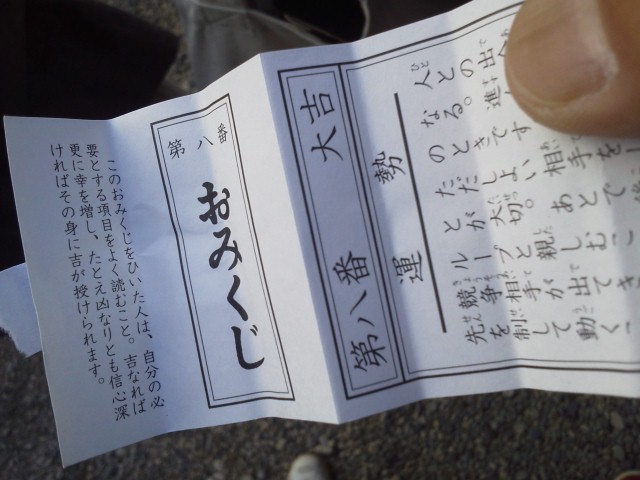 第八番
おみくじ
このおみくじをひいた人は、自分の必
要とする項目をよく読むこと。吉なれば
更に幸を増し、たとえ凶なりとも信心深
ければその身に吉が授けられます。
第八番 大吉
運勢
先を制して動く
競争相手が出てき
ループと親しむこ
とが大切。あとで
ただしよい相手を
のときです
なる。進
人との出